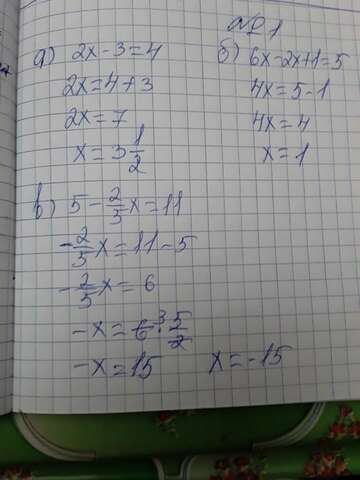 № 1
а) 2x - 3 = 4
2x = 4 + 3
2x = 7
x = 3 1/2
б) 6x - 2x + 1 = 5
4x = 5 - 1
4x = 4
x = 1
в) 5 - 2/5 x = 11
- 2/5 x = 11 - 5
- 2/5 x = 6
- x = 6 3 · 5/2
- x = 15 x = -15